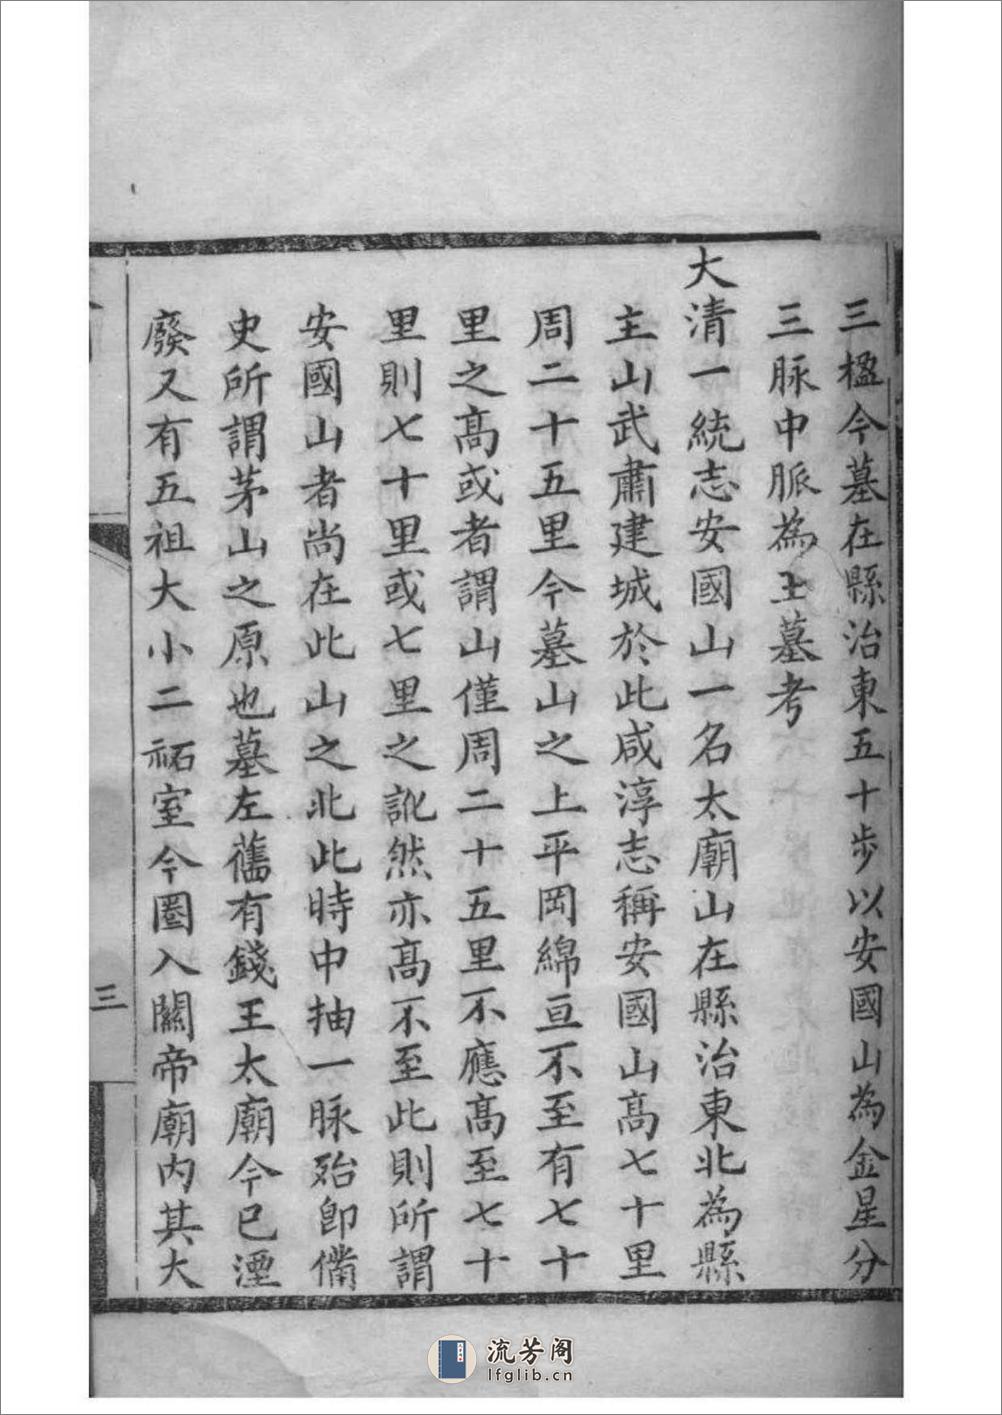 三楹今墓在縣治東五十步以安國山為金星分
三脉中脈為王墓考
大清一統志安國山一名太廟山在縣治東北為縣
主山武肅建城於此咸淳志稱安國山髙七十里
周二十五里今墓山之上平岡綿亘不至有七十
里之髙或者謂山僅周二十五里不應髙至七十
里則七十里或七里之訛然亦髙不至此則所謂
安國山者尚在此山之北此時中抽一脉殆卽備
史所謂茅山之原也墓左舊有錢王太廟今已湮
廢又有五祖大小二祏室今圈入關帝廟内其大
三
流芳阁
lfglib.cn